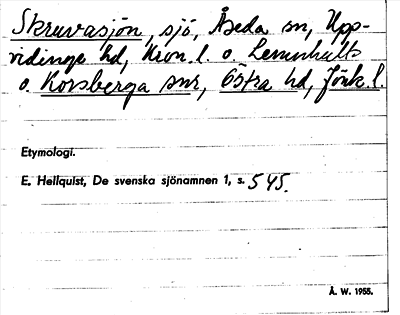 Skruvasjön, sjö, Åseda sn, Upp-
vidinge hd, Kron. l. o. Lemnhults
o. Korsberga snr, Östra hd, Jönk. l.
Etymologi.
E. Hellquist, De svenska sjönamnen 1, s. 545.
Å. W. 1955.